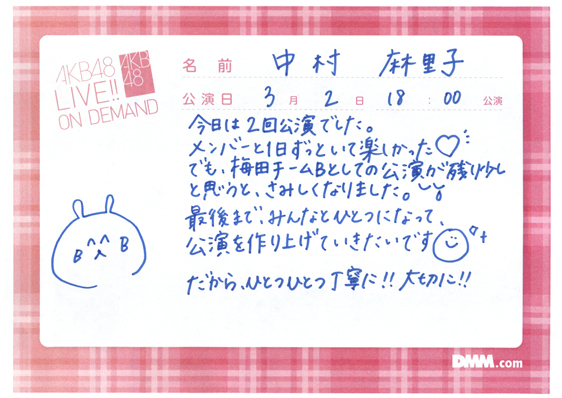 AKB48
LIVE!!
ON DEMAND
AKB
48
名前 中村 麻里子
公演日 3月2日 18:00 公演
今日は2回公演でした。
メンバーと1日ずっといて楽しかった♡
でも、梅田チームBとしての公演が残り少し
と思うと、さみしくなりました。
最後まで、みんなとひとつになって、
公演を作り上げていきたいです
だから、ひとつひとつ丁寧に!!大切に!!
B B
DMM.com